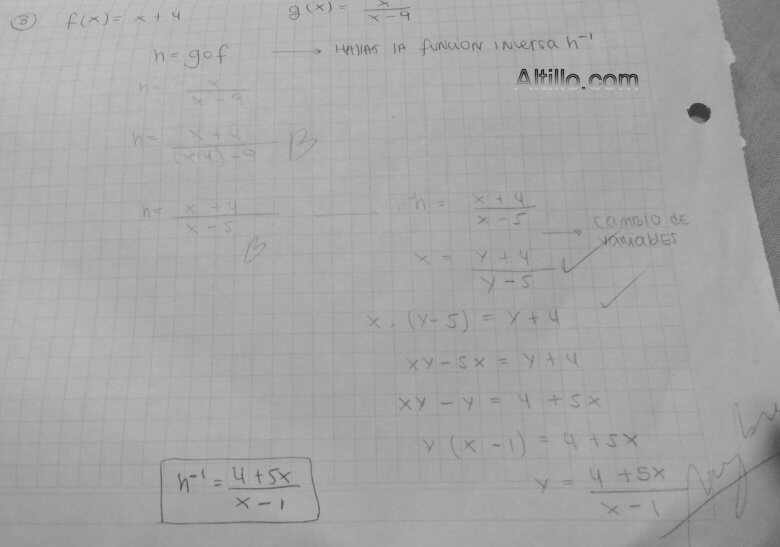 ③ f(x) = x + 4 g(x) = x/(x - 9)
h = gof → HALLAR LA FUNCION INVERSA h⁻¹
Altillo.com
h = x/(x - 9)
h = (x + 4)/((x+4) - 9) B
h = (x + 4)/(x - 5) B
h = (x + 4)/(x - 5) → CAMBIO DE VARIABLES
x = (y + 4)/(y - 5) ✓
x . (y - 5) = y + 4 ✓
xy - 5x = y + 4
xy - y = 4 + 5x
y (x - 1) = 4 + 5x
y = (4 + 5x)/(x - 1)
h⁻¹ = (4 + 5x)/(x - 1)